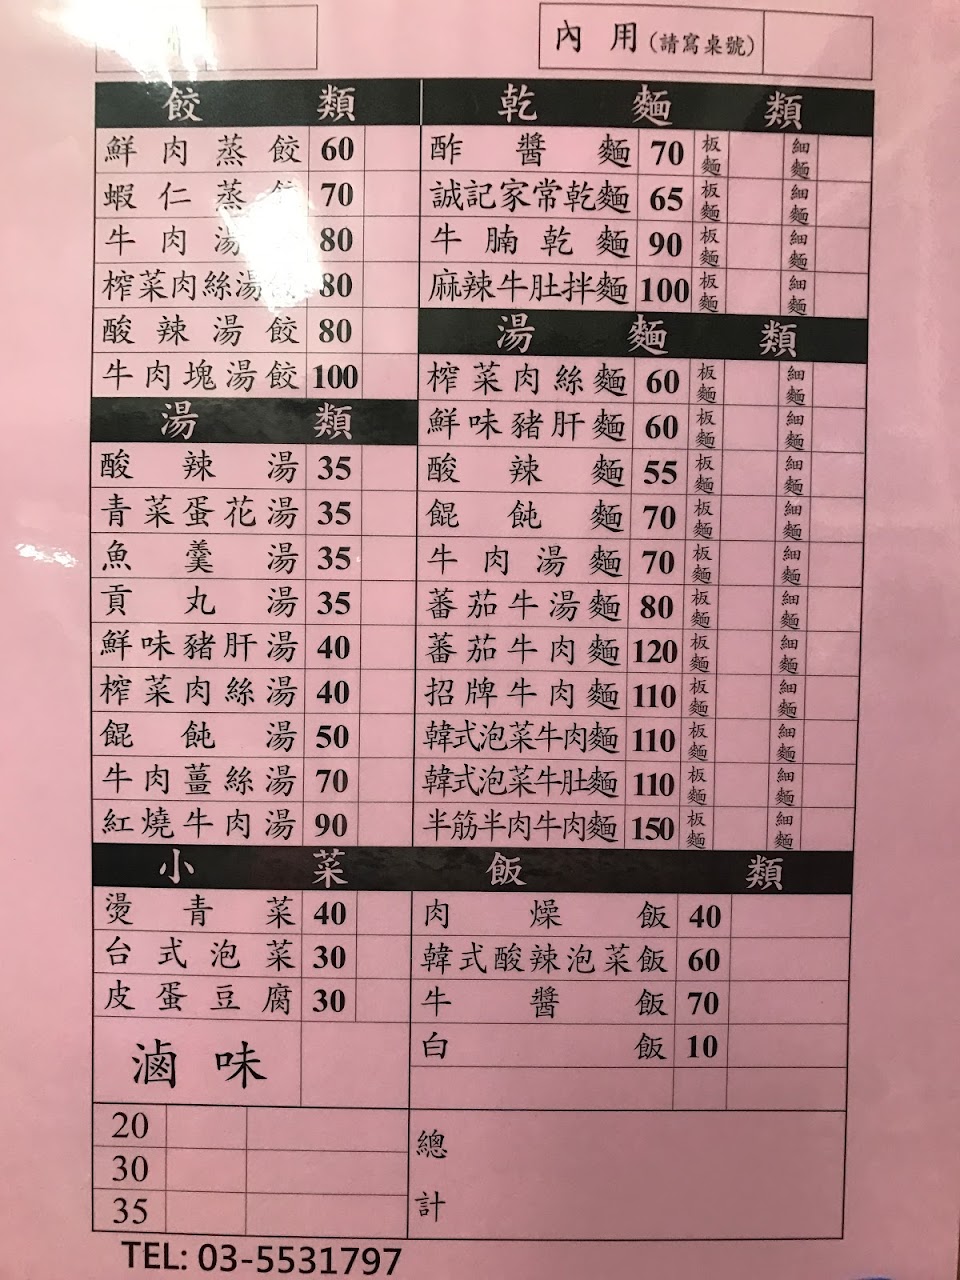 內用(請寫桌號)
餃類
鮮肉蒸餃 60
蝦仁蒸 70
牛肉湯 80
榨菜肉絲湯 80
酸辣湯餃 80
牛肉塊湯餃 100
湯類
酸辣湯 35
青菜蛋花湯 35
魚羹湯 35
貢丸湯 35
鮮味豬肝湯 40
榨菜肉絲湯 40
餛飩湯 50
牛肉薑絲湯 70
紅燒牛肉湯 90
乾麵類
酢醬麵 70 板麵 細麵
誠記家常乾麵 65 板麵 細麵
牛腩乾麵 90 板麵 細麵
麻辣牛肚拌麵 100 板麵 細麵
湯麵類
榨菜肉絲麵 60 板麵 細麵
鮮味豬肝麵 60 板麵 細麵
酸辣麵 55 板麵 細麵
餛飩麵 70 板麵 細麵
牛肉湯麵 70 板麵 細麵
蕃茄牛湯麵 80 板麵 細麵
蕃茄牛肉麵 120 板麵 細麵
招牌牛肉麵 110 板麵 細麵
韓式泡菜牛肉麵 110 板麵 細麵
韓式泡菜牛肚麵 110 板麵 細麵
半筋半肉牛肉麵 150 板麵 細麵
小菜
燙青菜 40
台式泡菜 30
皮蛋豆腐 30
滷味
20
30
35
飯類
肉燥飯 40
韓式酸辣泡菜飯 60
牛醬飯 70
白飯 10
總計
TEL: 03-5531797